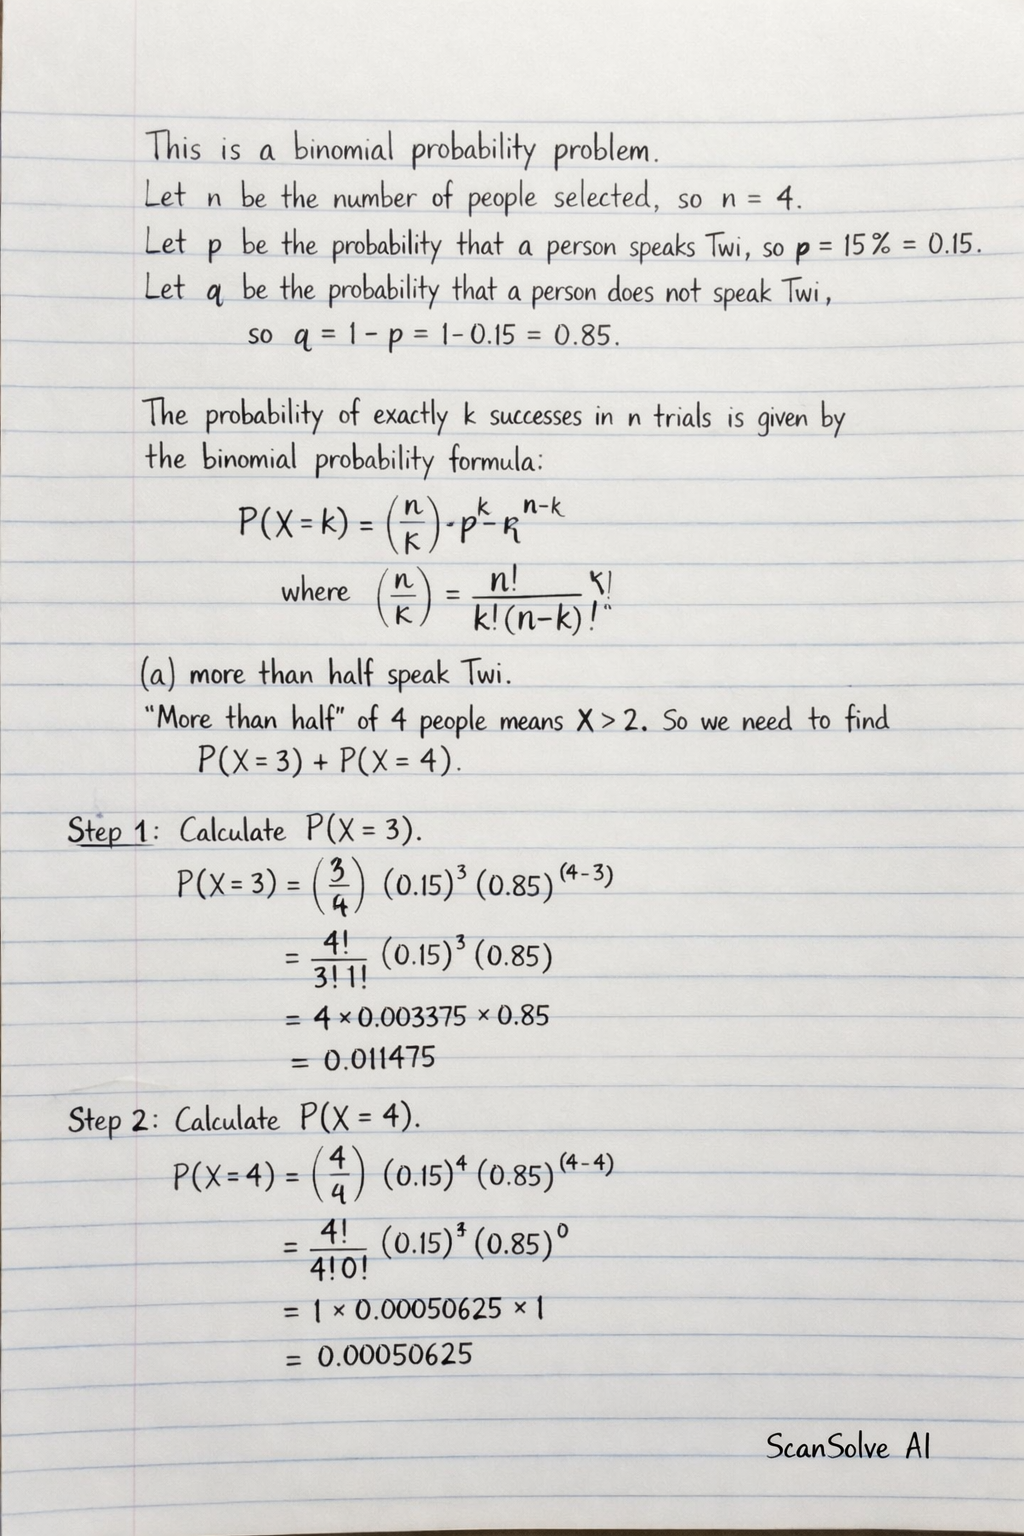 This is a binomial probability problem.
Let n be the number of people selected, so n = 4.
Let p be the probability that a person speaks Twi, so p = 15% = 0.15.
Let q be the probability that a person does not speak Twi,
so q = 1 - p = 1 - 0.15 = 0.85.
The probability of exactly k successes in n trials is given by
the binomial probability formula:
P(X = k) = (n/k) · p^k - R^(n-k)
where (n/k) = n! / k!(n-k)!" k!
(a) more than half speak Twi.
"More than half" of 4 people means X > 2. So we need to find
P(X = 3) + P(X = 4).
Step 1: Calculate P(X = 3).
P(X = 3) = (3/4) (0.15)³ (0.85)^(4-3)
= 4! / 3! 1! (0.15)³ (0.85)
= 4 × 0.003375 × 0.85
= 0.011475
Step 2: Calculate P(X = 4).
P(X = 4) = (4/4) (0.15)⁴ (0.85)^(4-4)
= 4! / 4! 0! (0.15) (0.85)⁰
= 1 × 0.00050625 × 1
= 0.00050625
ScanSolve AI